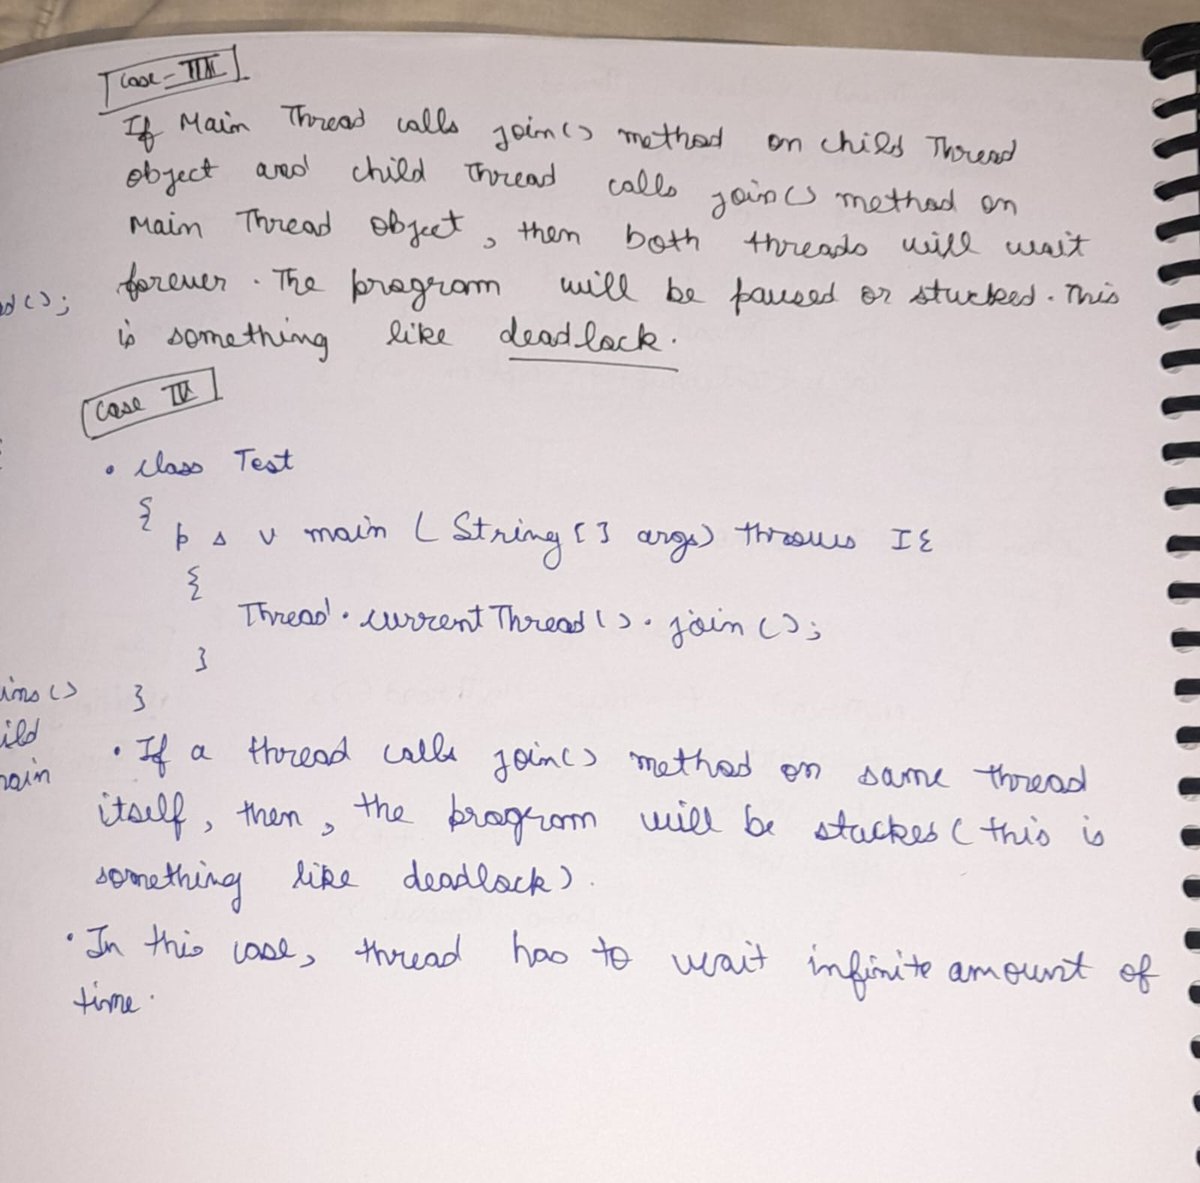 Case-III
If Main Thread calls join() method on child Thread
object and child Thread calls join() method on
Main Thread Object, then both threads will wait
forever. The program will be paused or stucked. This
is something like deadlock.
Case IV
• class Test
{
p s v main (String[] args) throws IE
{
Thread.currentThread().join();
}
}
• If a thread calls join() method on same thread
itself, then, the program will be stucked (this is
something like deadlock).
• In this case, thread has to wait infinite amount of
time.